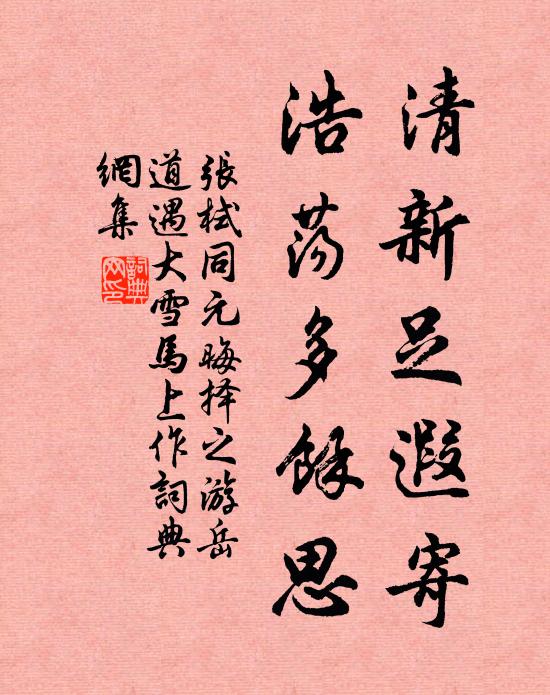 清新足遐寄
浩荡多餘思
張栻同元晦择之游岳
道遇大雪馬上作詞典
網集
詞典網印